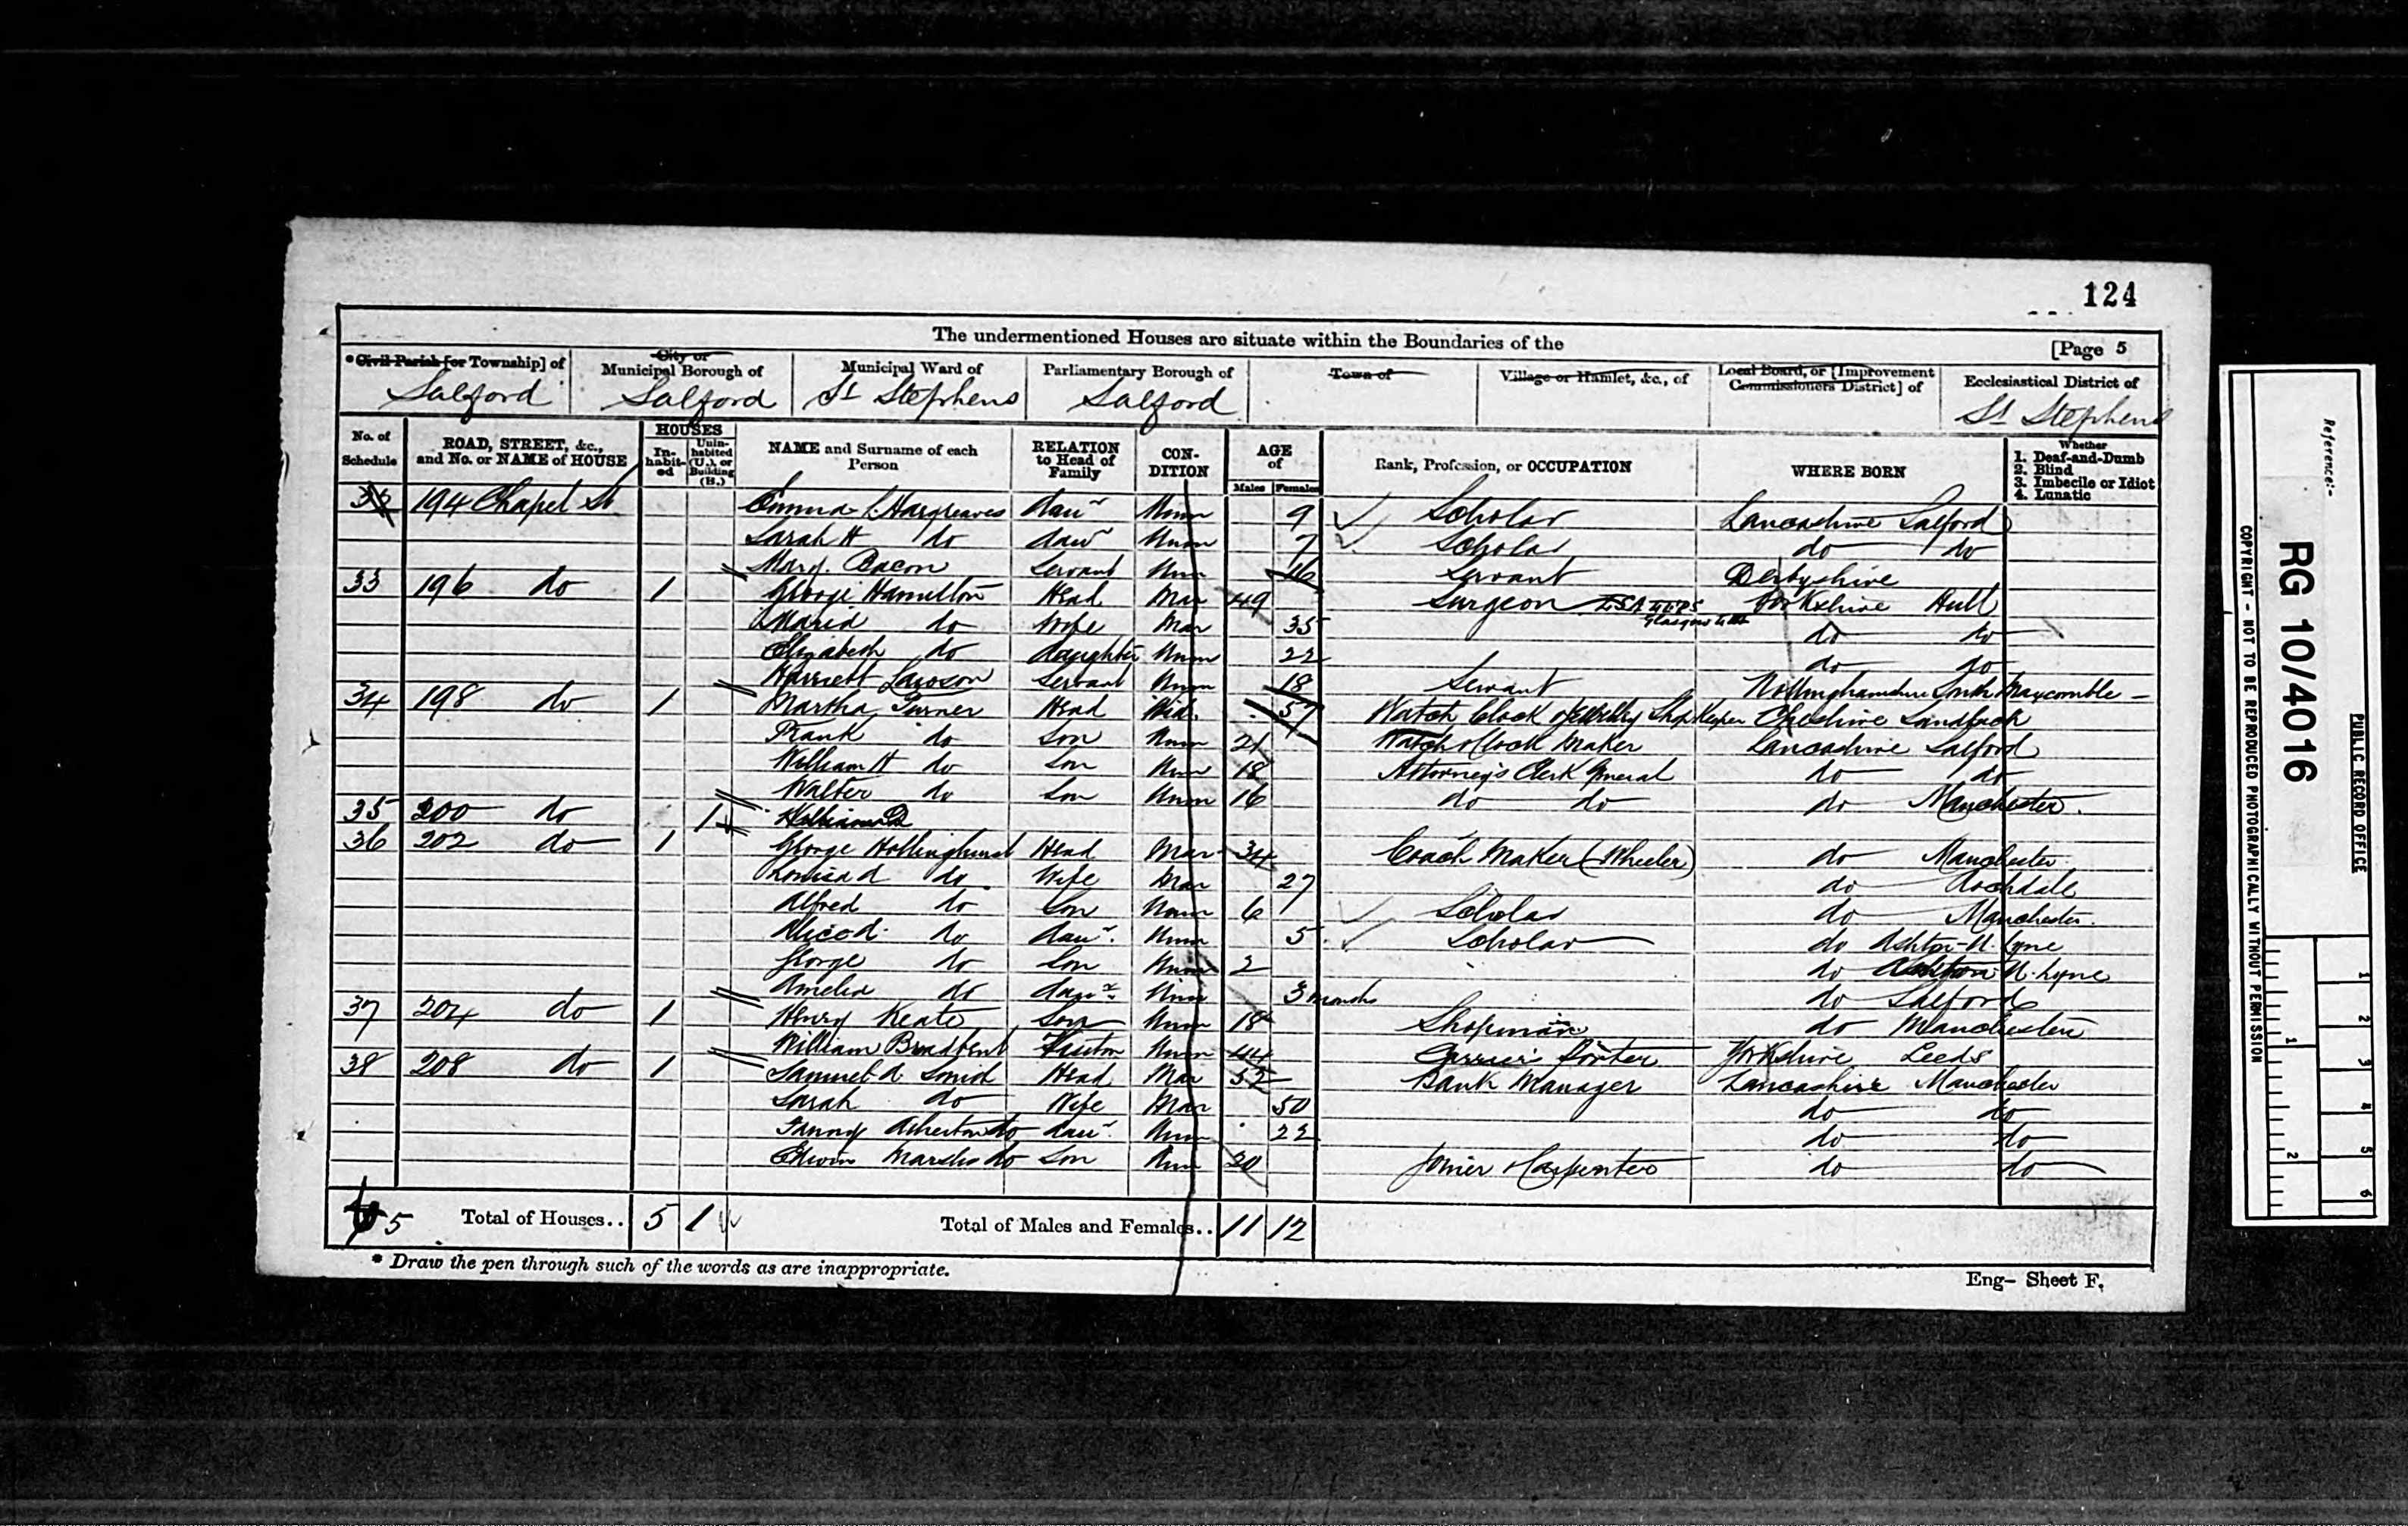 124
The undermentioned Houses are situate within the Boundaries of the
[Page 5
* Civil Parish [or Township] of
Salford
City or Municipal Borough of
Salford
Municipal Ward of
St Stephens
Parliamentary Borough of
Salford
Town of
Village or Hamlet, &c., of
Local Board, or [Improvement Commissioners District] of
Ecclesiastical District of
St Stephens
No. of Schedule
ROAD, STREET, &c., and No. or NAME of HOUSE
HOUSES
In-habit-ed
Unin-habited (U.), or Building (B.)
NAME and Surname of each Person
RELATION to Head of Family
CON-DITION
AGE of
Males Females
Rank, Profession, or OCCUPATION
WHERE BORN
Whether
1. Deaf-and-Dumb
2. Blind
3. Imbecile or Idiot
4. Lunatic
194 Chapel St Hargreaves daur Unm 9 Scholar Lancashire Salford
Sarah H do daur Unm 7 Scholar do do
Mary Bacon Servant Unm 16 Servant Derbyshire
33 196 do 1 George Hamilton Head Mar 49 Surgeon Yorkshire Hull
Maria do Wife Mar 35 do do
Elizabeth do daughter Unm 22 do do
Harriett Lawson Servant Unm 18 Servant Nottinghamshire
34 198 do 1 Martha Turner Head Wid. 57 Watch Clock Shop Keeper Cheshire Sandbach
Frank do Son Unm 21 Watch & Clock Maker Lancashire Salford
William H do Son Unm 18 Attorney's Clerk General do do
Walter do Son Unm 16 do do do Manchester.
35 200 do 1
36 202 do 1 George Hollinghurst Head Mar 34 Coach Maker (Wheeler) do Manchester
Louisa do Wife Mar 27 do Rochdale
Alfred do Son Unm 6 Scholar do Manchester.
do daur. Unm 5 Scholar do Ashton-U. Lyne
George do Son Unm 2 do Ashton U. Lyne
Amelia do daur. Unm 3 months do Salford
37 204 do 1 Henry Keate Unm 18 Shopman do Manchester
William Bradbent Visitor Unm 44 Porter Yorkshire Leeds
38 208 do 1 Samuel Head Mar 52 Bank Manager Lancashire Manchester
Sarah do Wife Mar 50 do do
Fanny do daur. Unm 22 do do
Edwin do Son Unm 20 Joiner & Carpenter do do
5 Total of Houses.. 5 1 Total of Males and Females.. 11 12
* Draw the pen through such of the words as are inappropriate.
Eng- Sheet F.
Reference:-
RG 10/4016
PUBLIC RECORD OFFICE
COPYRIGHT - NOT TO BE REPRODUCED PHOTOGRAPHICALLY WITHOUT PERMISSION
1 2 3 4 5 6
1 2